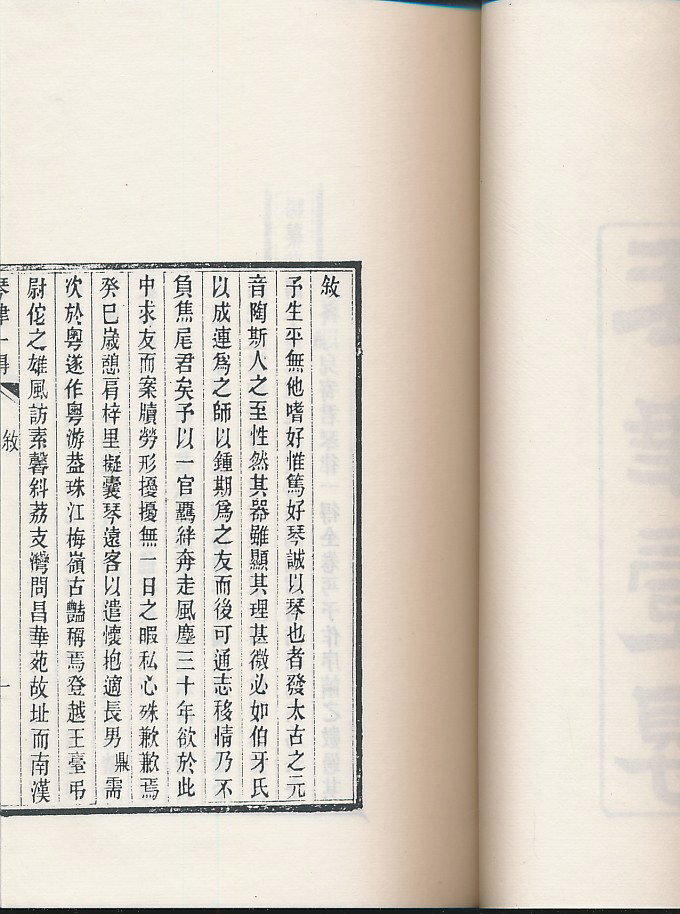 敘
予生平無他嗜好惟篤好琴誠以琴也者發太古之元
音陶斯人之至性然其器雖顯其理甚微必如伯牙氏
以成連爲之師以鍾期爲之友而後可通志移情乃不
負焦尾君矣予以一官羈絆奔走風塵三十年欲於此
中求友而案牘勞形擾擾無一日之暇私心殊歉歉焉
癸巳歲憩肩梓里擬囊琴遠客以遣懷抱適長男鼎需
次於粵遂作粵游葢珠江梅嶺古豔稱焉登越王臺弔
尉佗之雄風訪素馨斜荔支灣問昌華苑故址而南漢
琴律一得 敘 一